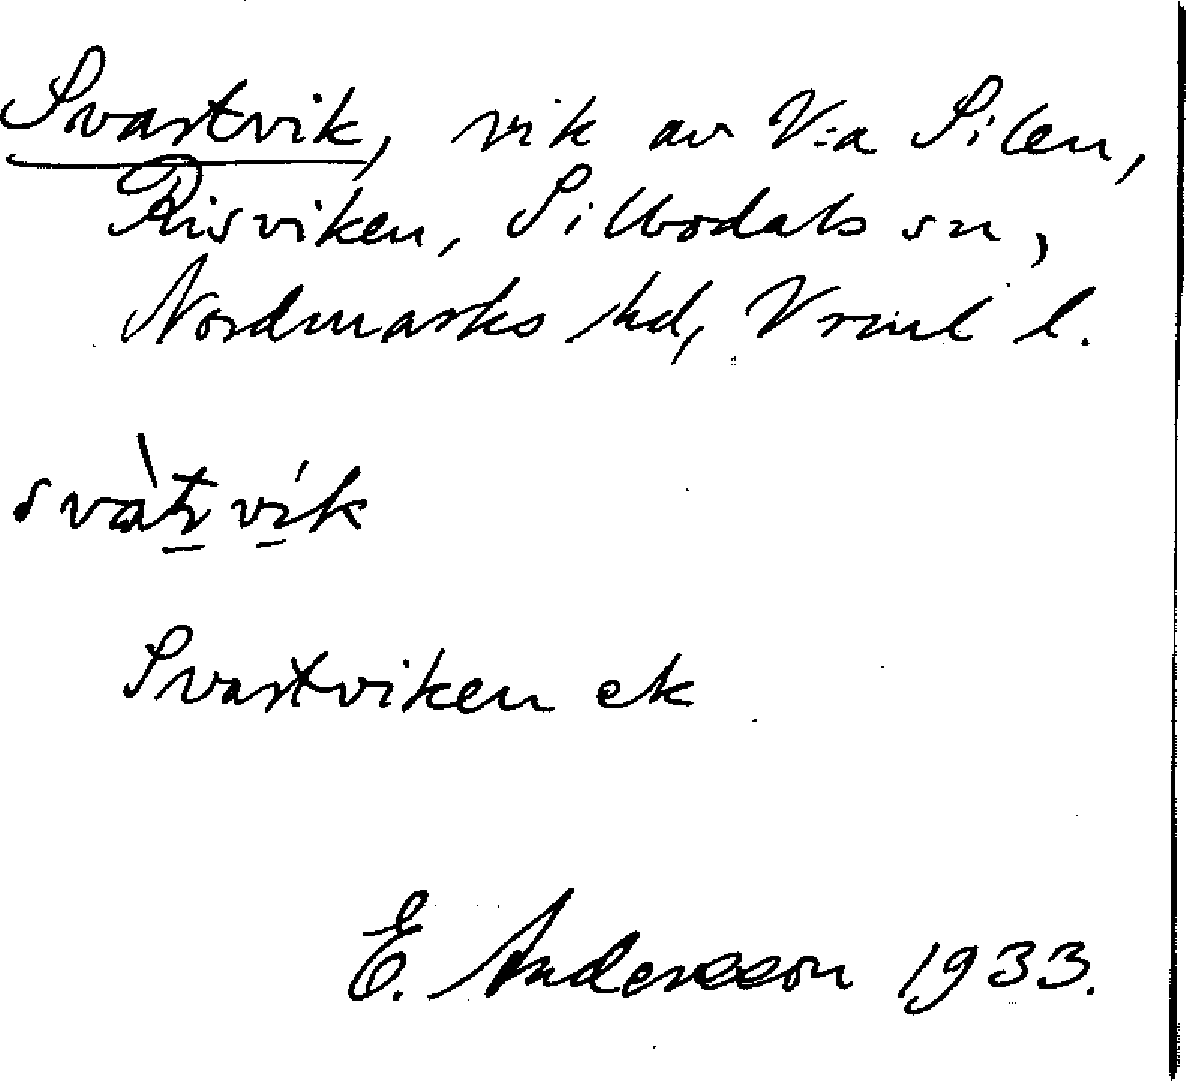 Svartvik, vik av V:a Silen,
Risviken, Sillbodals sn,
Nordmarks hd, Vrml l.
svàtvík
Svartviken ek
E. Andersson 1933.